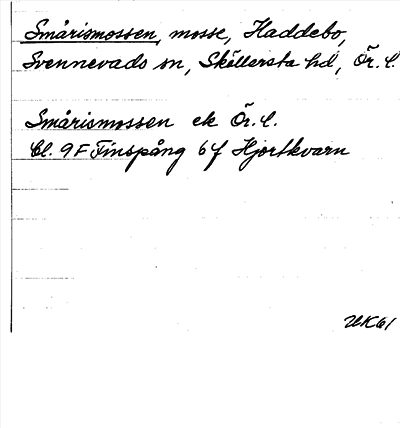 Smårismossen, mosse, Haddebo,
Svennevads sn, Sköllersta hd, Ör. l.
Smårismossen ek Ör. l.
Bl. 9F Finspång 6f Hjortkvarn
UK61